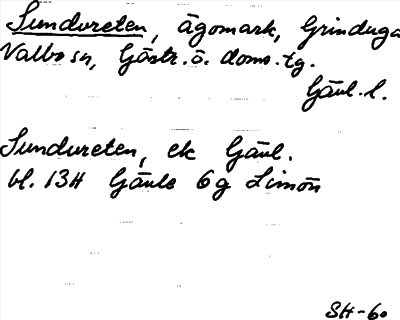 Sundvreten, ägomark, Grinduga
Valbo sn, Gästr. ö. doms. tg.
Gävl. l.
Sundvreten, ek Gävl.
bl. 13H Gävle 6g Limön
SH-60